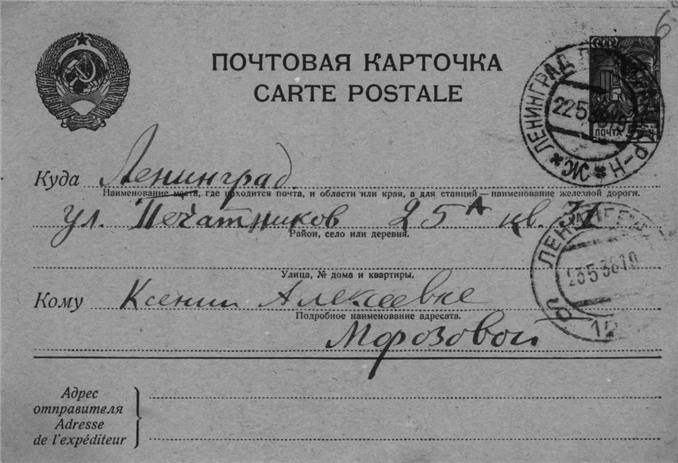 ПОЧТОВАЯ КАРТОЧКА
CARTE POSTALE
ЛЕНИНГРАД
ПОЧТА
22 5 38
Куда Ленинград
Наименование места, где находится почта, и области или края, а для станций—наименование железной дороги.
ул. Печатников 25А кв.
Район, село или деревня.
ЛЕНИНГРАД
23 5 38 10
Улица, № дома и квартиры.
Кому Ксении Алексеевне
Подробное наименование адресата.
Морозовой
Адрес
отправителя
Adresse
de l'expéditeur